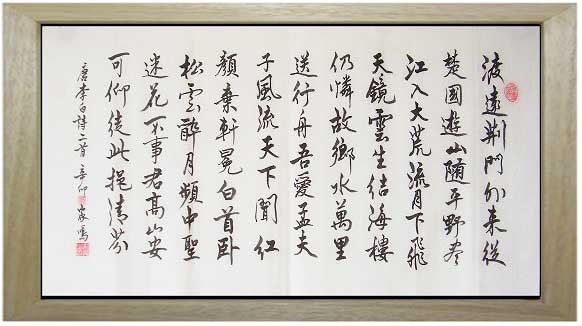 渡遠荆門外来從
楚國遊山随平野尽
江入大荒流月下飛
天鏡雲生结海樓
仍憐故鄉水萬里
送行舟吾愛孟夫
子風流天下聞红
顏棄軒冕白首卧
松雲醉月頻中聖
迷花不事君高山安
可仰徒此挹清芬
唐李白詩二首辛卯